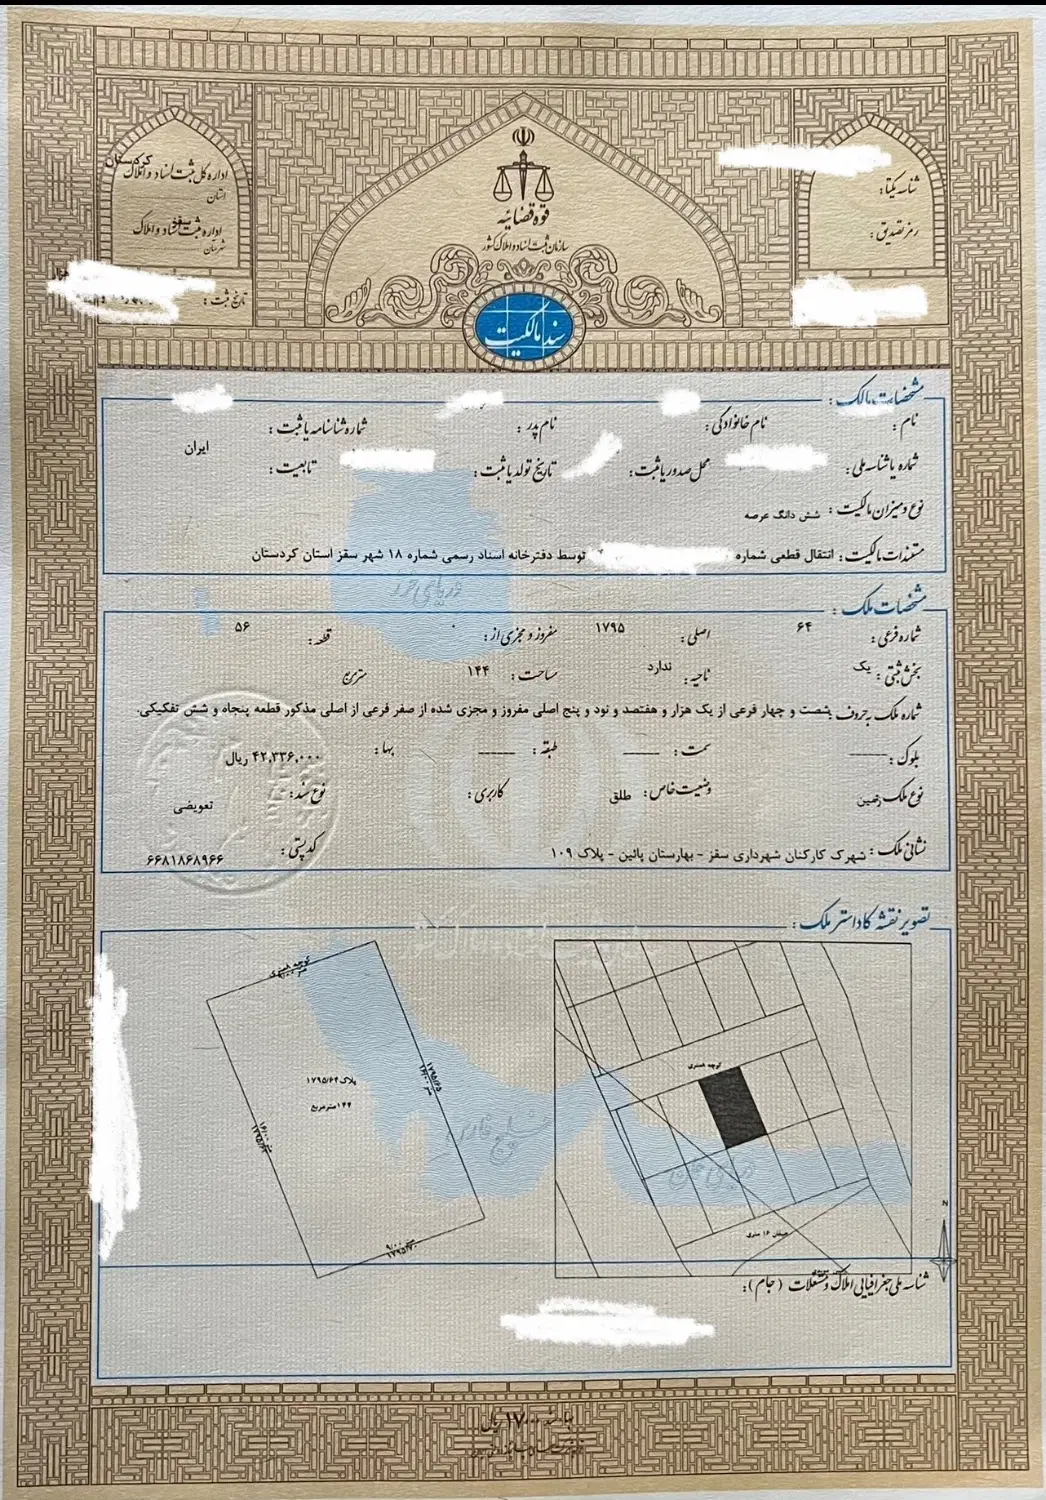 قوه قضائیه
سازمان ثبت اسناد و املاک کشور
سند مالکیت
شناسه یکتا:
رمز تصدیق:
اداره کل ثبت اسناد و املاک کردستان
استان
اداره ثبت اسناد و املاک سقز
شهرستان
تاریخ ثبت:
مشخصات مالک:
نام: نام خانوادگی: نام پدر: شماره شناسنامه یا ثبت:
شماره یا شناسه ملی: محل صدور یا ثبت: تاریخ تولد یا ثبت: تابعیت: ایران
نوع و میزان مالکیت: شش دانگ عرصه
مستندات مالکیت: انتقال قطعی شماره توسط دفترخانه اسناد رسمی شماره ۱۸ شهر سقز استان کردستان
دریای خزر
مشخصات ملک:
شماره فرعی: ۶۴ اصلی: ۱۷۹۵ مفروز و مجزی از: ۰ قطعه: ۵۶
بخش ثبتی: یک ناحیه: ندارد مساحت: ۱۴۴ مترمربع
شماره ملک به حروف: شصت و چهار فرعی از یک هزار و هفتصد و نود و پنج اصلی مفروز و مجزی شده از صفر فرعی از اصلی مذکور قطعه پنجاه و شش تفکیکی.
بلوک: —— سمت: —— طبقه: —— بها: ۴۲,۳۳۶,۰۰۰ ریال
نوع ملک: زمین وضعیت خاص: طلق کاربری: نوع سند: تعویضی
نشانی ملک: شهرک کارکنان شهرداری سقز - بهارستان پائین - پلاک ۱۰۹ کدپستی: ۶۶۸۱۸۶۸۹۶۶
تصویر نقشه کاداستر ملک:
کوچه ۸متری
پلاک ۱۷۹۵/۶۴
۱۴۴ مترمربع
۱۷۹۵/۶۵
خلیج فارس
دریای عمان
خیابان ۱۶ متری
N
شناسه ملی جغرافیایی املاک و مستغلات (جام):
بهاء سند ۱۷۰۰۰۰ ریال